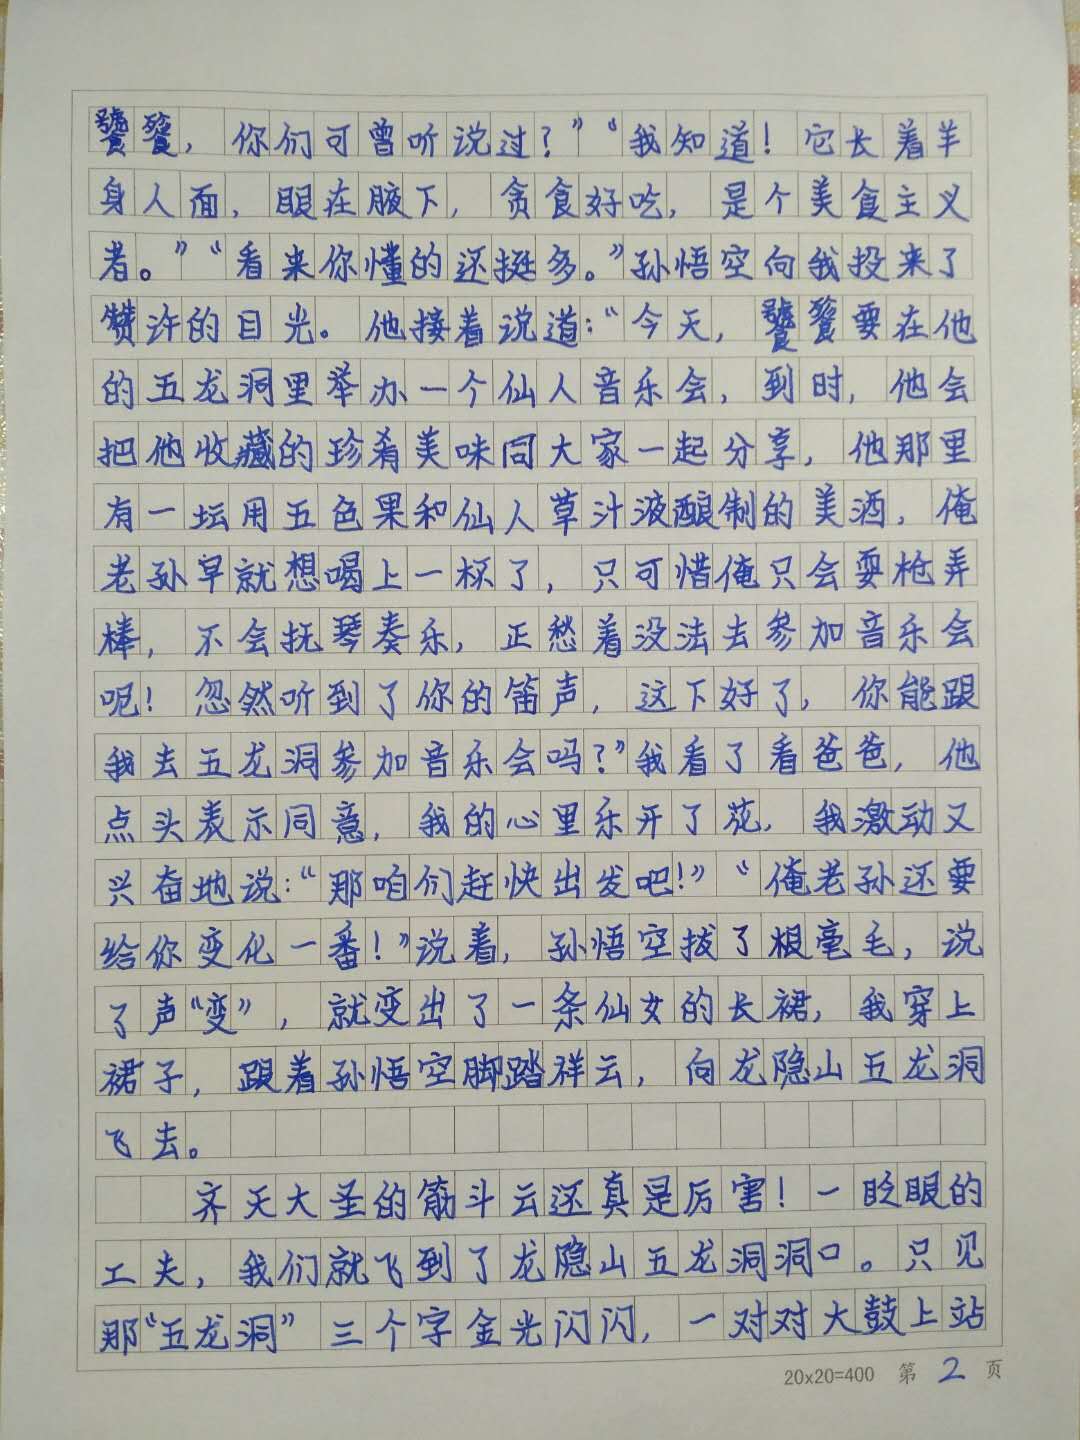 饕餮，你们可曾听说过？”“我知道！它长着羊
身人面，眼在腋下，贪食好吃，是个美食主义
者。”“看来你懂的还挺多。”孙悟空向我投来了
赞许的目光。他接着说道：“今天，饕餮要在他
的五龙洞里举办一个仙人音乐会，到时，他会
把他收藏的珍肴美味同大家一起分享，他那里
有一坛用五色果和仙人草汁液酿制的美酒，俺
老孙早就想喝上一杯了，只可惜俺只会耍枪弄
棒，不会抚琴奏乐，正愁着没法去参加音乐会
呢！忽然听到了你的笛声，这下好了，你能跟
我去五龙洞参加音乐会吗？”我看了看爸爸，他
点头表示同意，我的心里乐开了花，我激动又
兴奋地说：“那咱们赶快出发吧！”“俺老孙还要
给你变化一番！”说着，孙悟空拔了根毫毛，说
了声“变”，就变出了一条仙女的长裙，我穿上
裙子，跟着孙悟空脚踏祥云，向龙隐山五龙洞
飞去。
齐天大圣的筋斗云还真是厉害！一眨眼的
工夫，我们就飞到了龙隐山五龙洞洞口。只见
那“五龙洞”三个字金光闪闪，一对对大鼓上站
20×20=400 第 2 页